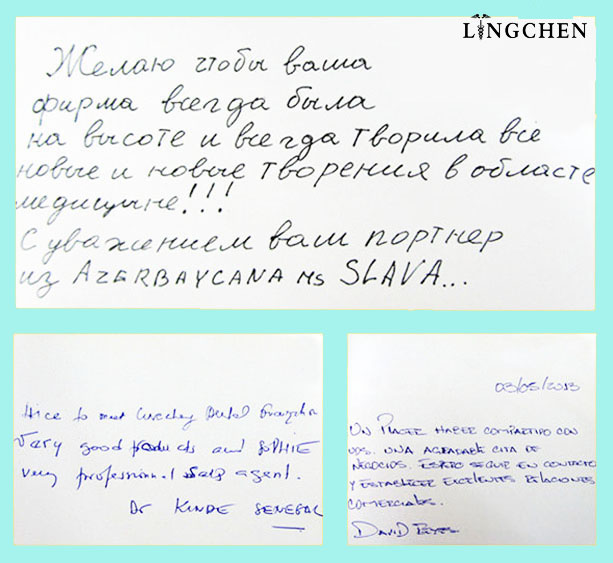 LINGCHEN
Желаю чтобы ваша
фирма всегда была
на высоте и всегда творила все
новые и новые творения в области
медицыне!!!
С уважением вам портнер
из AZERBAYCANA MS SLAVA...
Nice to meet Dental
Very good products and SOPHIE
very professional sales agent.
Dr KINDE SENEGAL
03/05/2013
UN PLACER HABER COMPARTIDO CON
UDS. UNA AGRADABLE CITA DE
NEGOCIOS. ESPERO SEGUIR EN CONTACTO
Y ESTABLECER EXCELENTES RELACIONES
COMERCIALES.
DAVID REYES